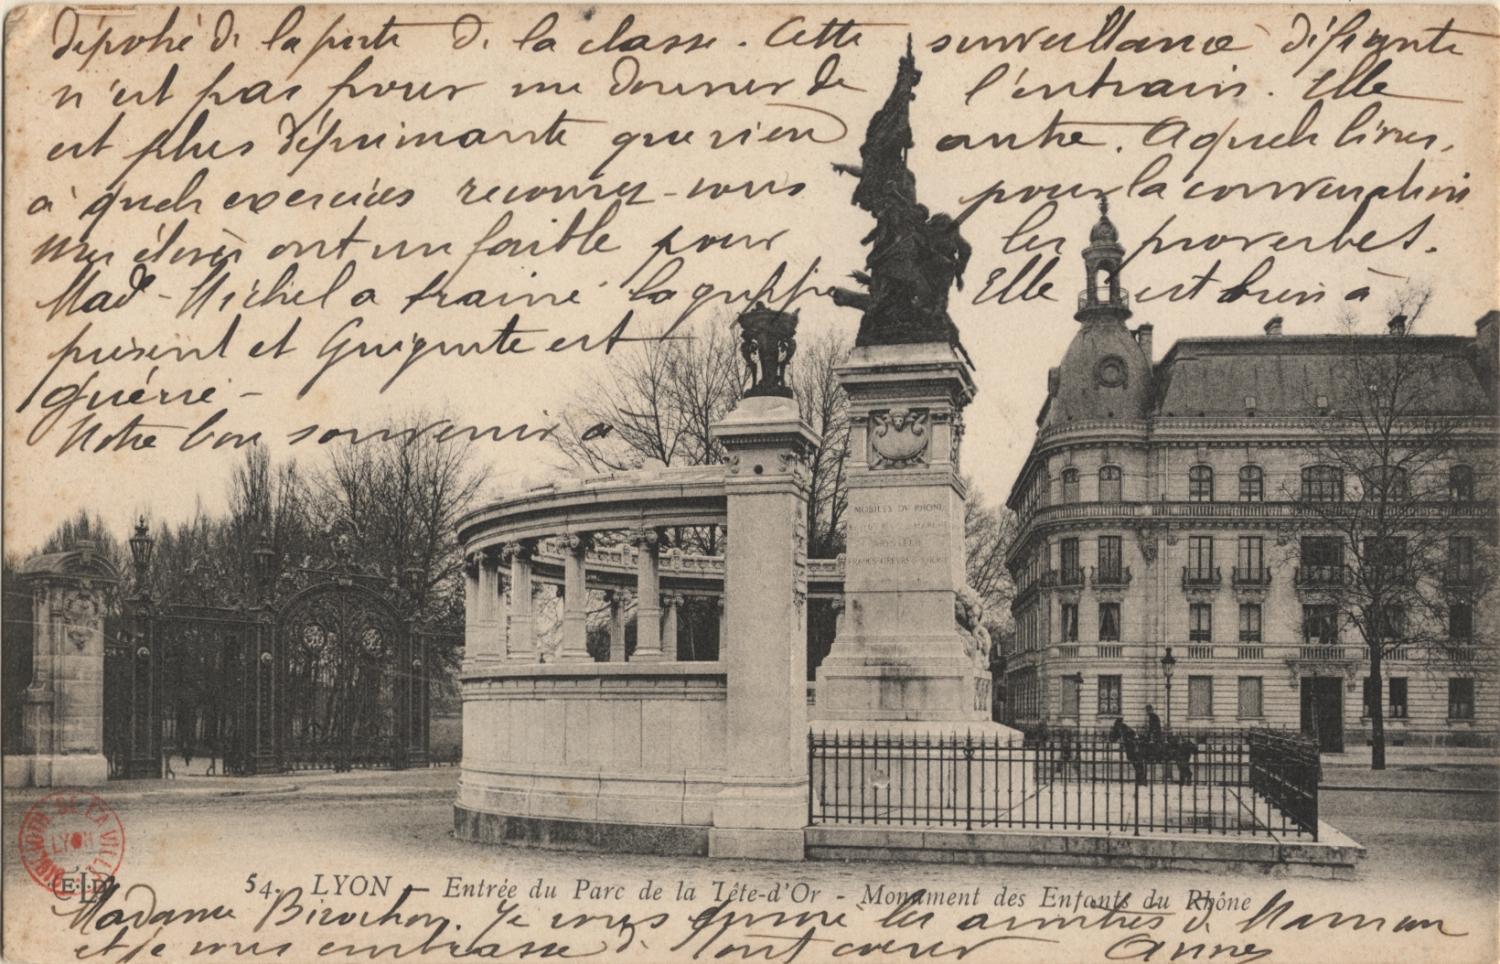 déposé de la porte de la classe. Cette surveillance défiante
n'est pas pour me donner de l'entrain. Elle
est plus déprimante que rien autre. A quels livres,
à quels exercices recourez-vous pour la conversation
mes élèves ont un faible pour les proverbes.
Mad- Michel a trainé la grippe Elle est bien à
présent et Guiguite est
guérie -
Notre bon souvenir à
MOBILES DU RHONE
BIBLIOTH DE LA VILLE
LYON
ELD
54. LYON - Entrée du Parc de la Tête-d'Or - Monument des Enfants du Rhône
Madame Birochon. Je vous donne les amitiés de Maman
et je vous embrasse de tout coeur Annes